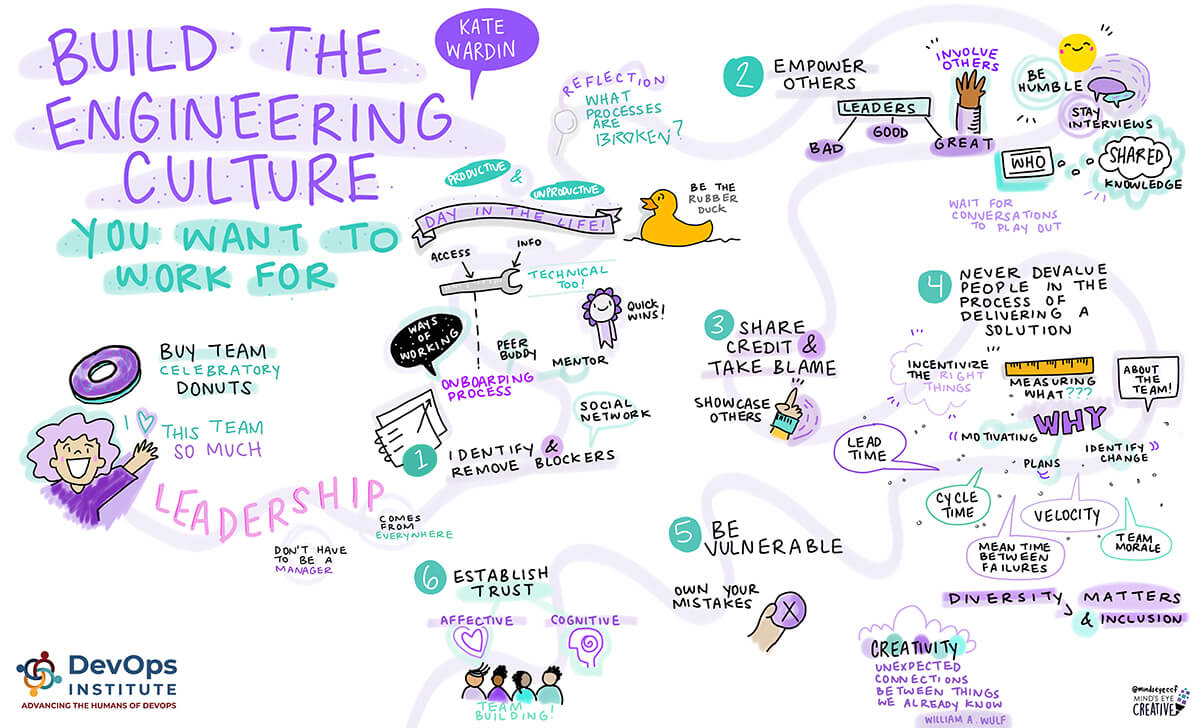 BUILD THE
ENGINEERING
CULTURE
YOU WANT TO
WORK FOR
KATE
WARDIN
REFLECTION
WHAT
PROCESSES
ARE
BROKEN?
PRODUCTIVE
&
UNPRODUCTIVE
DAY IN THE LIFE!
BE THE
RUBBER
DUCK
ACCESS
INFO
TECHNICAL
TOO!
QUICK
WINS!
WAYS
OF
WORKING
PEER
BUDDY
MENTOR
ONBOARDING
PROCESS
SOCIAL
NETWORK
1
IDENTIFY &
REMOVE BLOCKERS
BUY TEAM
CELEBRATORY
DONUTS
I
THIS TEAM
SO MUCH
LEADERSHIP
COMES
FROM
EVERYWHERE
DON'T HAVE
TO BE A
MANAGER
2
EMPOWER
OTHERS
LEADERS
BAD
GOOD
GREAT
INVOLVE
OTHERS
BE
HUMBLE
STAY
INTERVIEWS
WHO
SHARED
KNOWLEDGE
WAIT FOR
CONVERSATIONS
TO PLAY OUT
3
SHARE
CREDIT &
TAKE BLAME
SHOWCASE
OTHERS
4
NEVER DEVALUE
PEOPLE IN THE
PROCESS OF
DELIVERING A
SOLUTION
INCENTIVIZE
THE RIGHT
THINGS
MEASURING
WHAT???
ABOUT
THE
TEAM!
WHY
"MOTIVATING
PLANS
IDENTIFY"
CHANGE
LEAD
TIME
CYCLE
TIME
VELOCITY
MEAN TIME
BETWEEN
FAILURES
TEAM
MORALE
DIVERSITY, MATTERS
& INCLUSION
5
BE
VULNERABLE
OWN YOUR
MISTAKES
X
6
ESTABLISH
TRUST
AFFECTIVE
COGNITIVE
TEAM
BUILDING!
CREATIVITY
UNEXPECTED
CONNECTIONS
BETWEEN THINGS
WE ALREADY KNOW
WILLIAM A. WULF
DevOps
INSTITUTE
ADVANCING THE HUMANS OF DEVOPS
@mindseyeccf
MIND'S EYE
CREATIVE